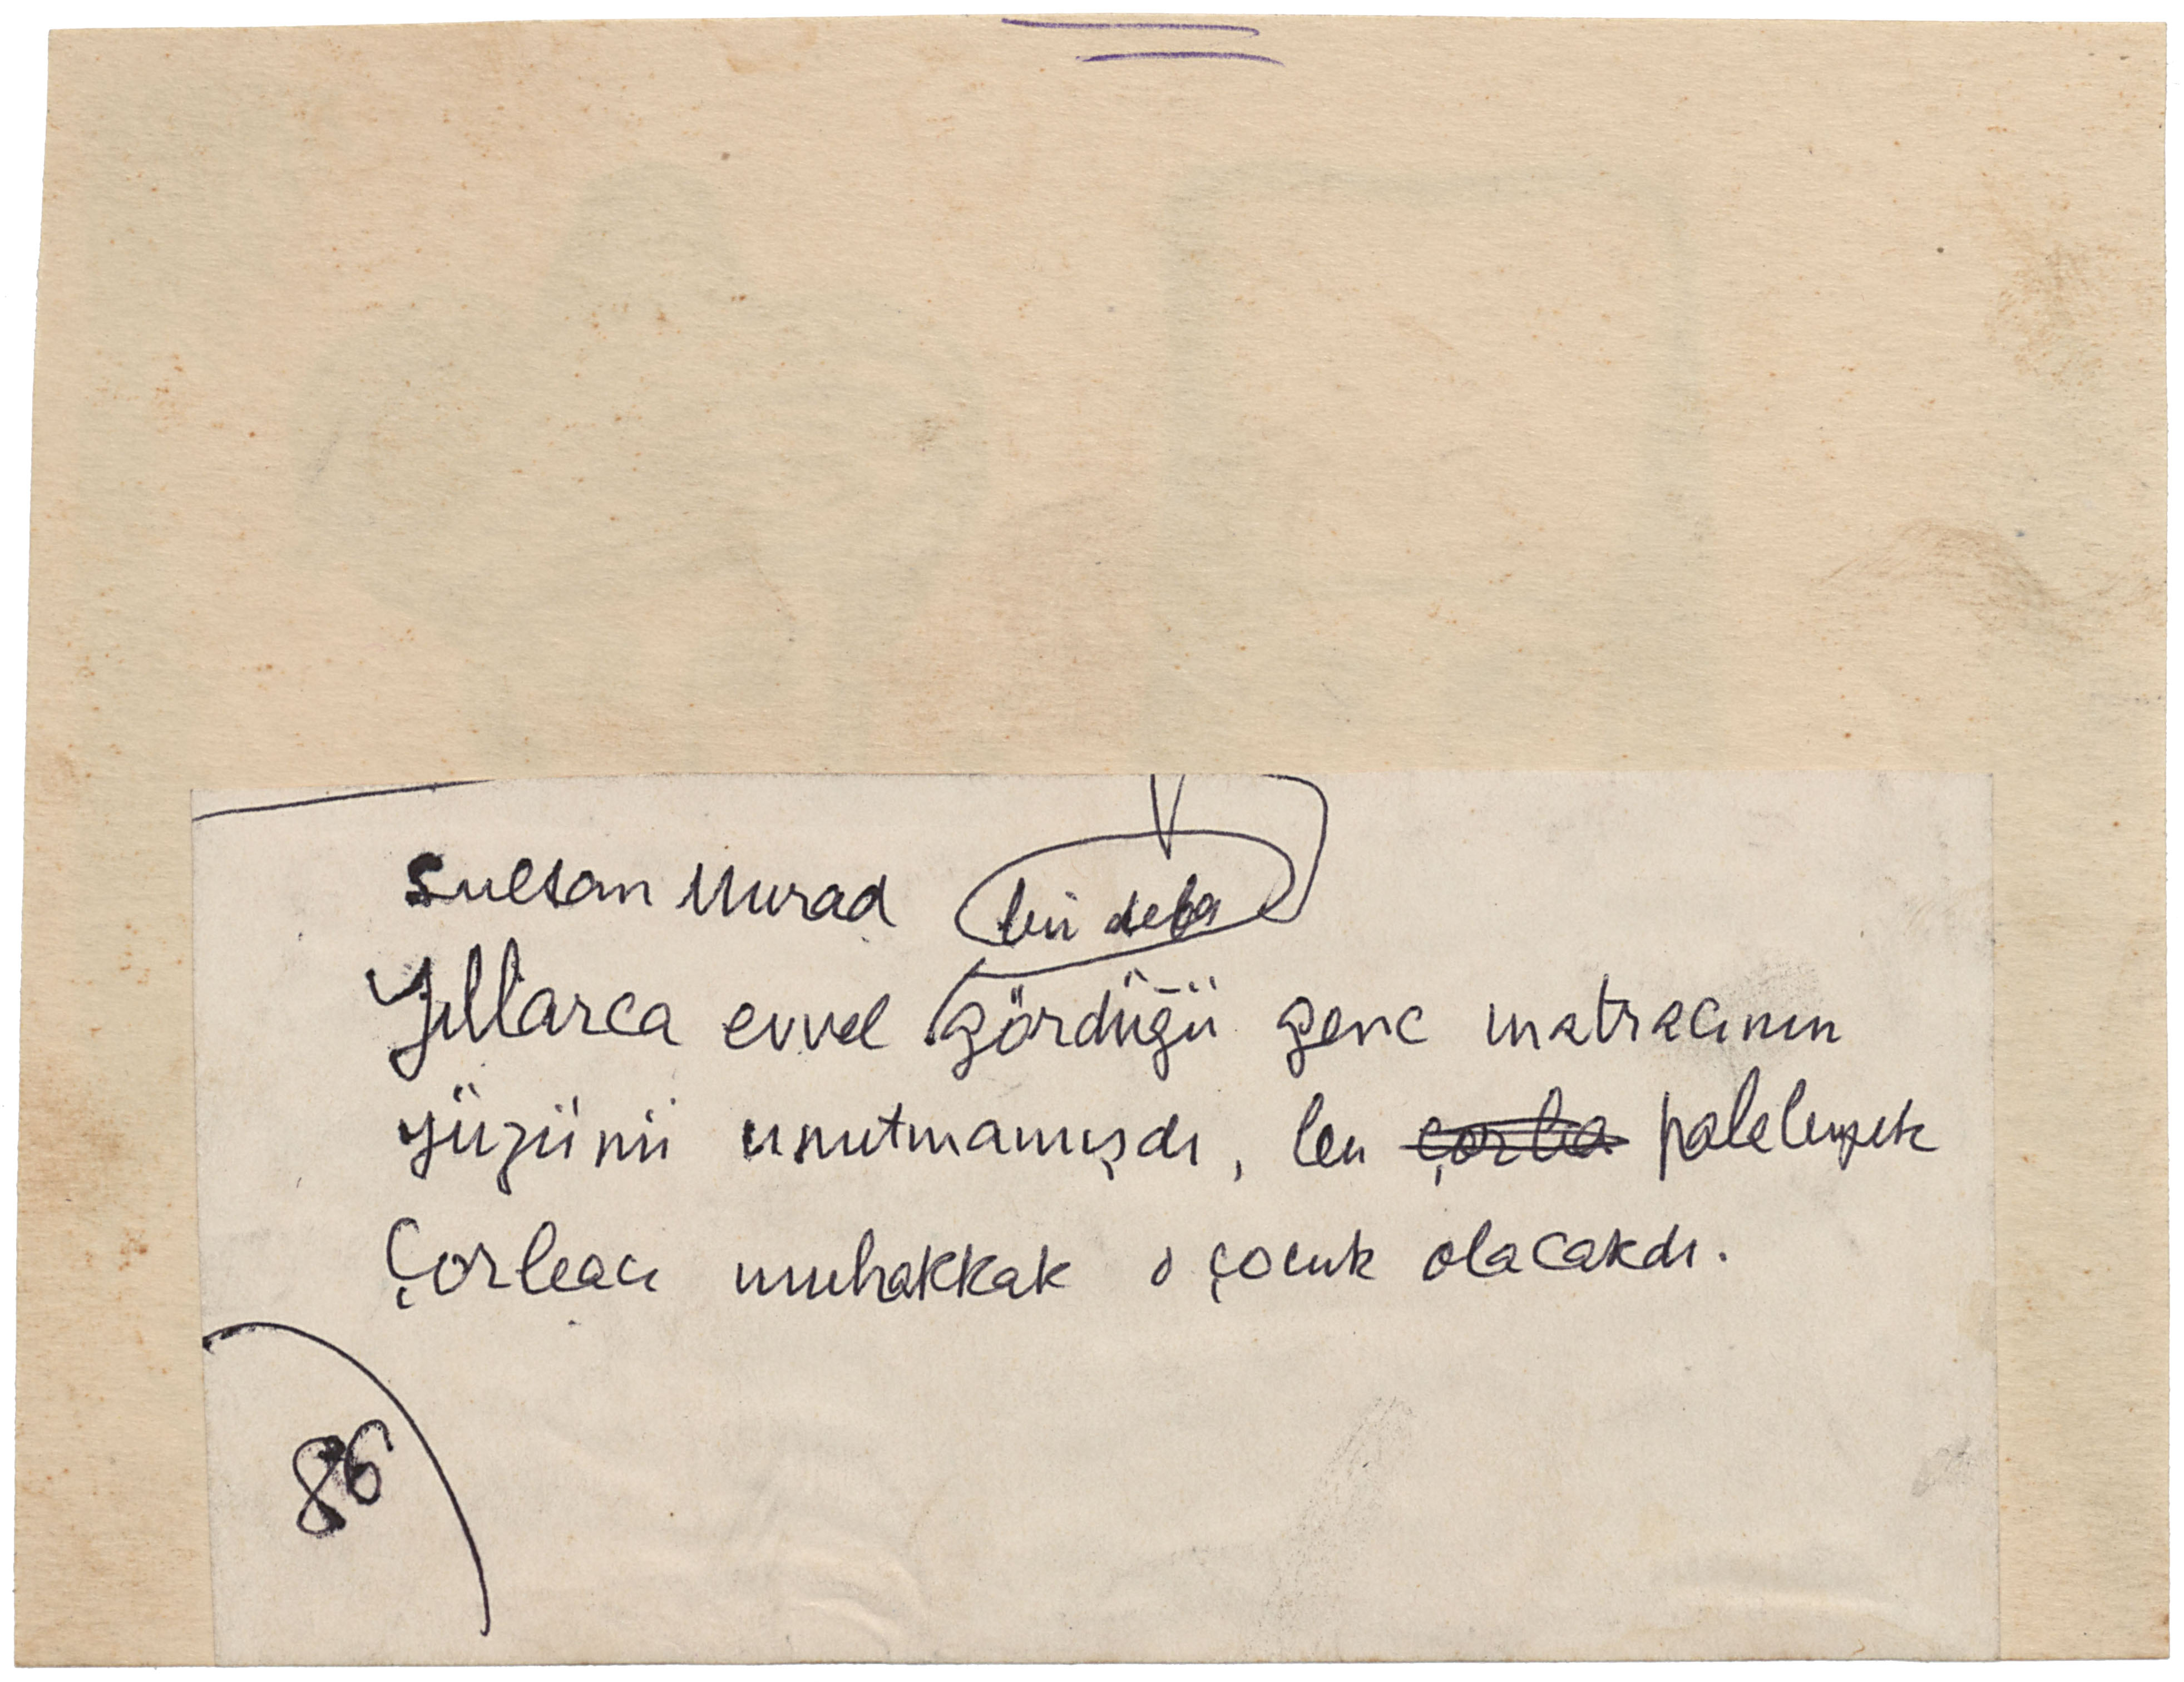 Sultan Murad bir defa
Yıllarca evvel gördüğü genc matracının
yüzünü unutmamışdı, bu çorba palabıyık
Çorbacı muhakkak o çocuk olacakdı.
86